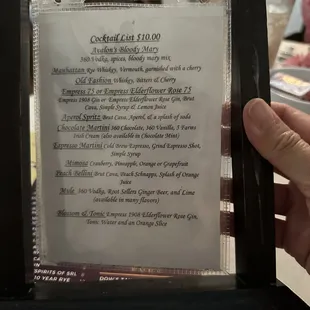 Cocktail List $10.00
Avalon's Bloody Mary
360 Vodka, spices, bloody mary mix
Manhattan Rye Whiskey, Vermouth, garnished with a cherry
Old Fashion Whiskey, Bitters & Cherry
Empress 75 or Empress Elderflower Rose 75
Empress 1908 Gin or Empress Elderflower Rose Gin, Brut
Cava, Simple Syrup & Lemon Juice
Aperol Spritz Brut Cava, Aperol, & a splash of soda
Chocolate Martini 360 Chocolate, 360 Vanilla, 5 Farms
Irish Cream (also available in Chocolate Mint)
Espresso Martini Cold Brew Espresso, Grind Espresso Shot,
Simple Syrup
Mimosa Cranberry, Pineapple, Orange or Grapefruit
Peach Bellini Brut Cava, Peach Schnapps, Splash of Orange
Juice
Mule 360 Vodka, Root Sellers Ginger Beer, and Lime
(available in many flavors)
Blossom & Tonic Empress 1908 Elderflower Rose Gin,
Tonic Water and an Orange Slice
SPIRITS OF ST.
10 YEAR RYE